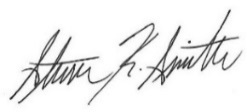 Steven K. Smith